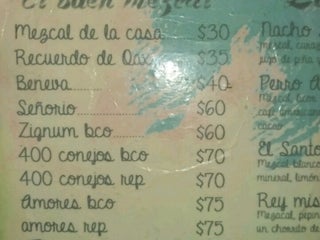 El buen mezcal
Mezcal de la casa $30
Recuerdo de Oax $35
Beneva.............. $40
Señorio............. $60
Zignum bco......... $60
400 conejos bco $70
400 conejos rep $70
Amores bco $75
amores rep $75
Nacho
Mezcal,
piña
Perro
Mezcal bco
cafe
cacao
El Santo
Mezcal blanco
mineral, limón
Rey mis
Mezcal, pepin
un chorrito de